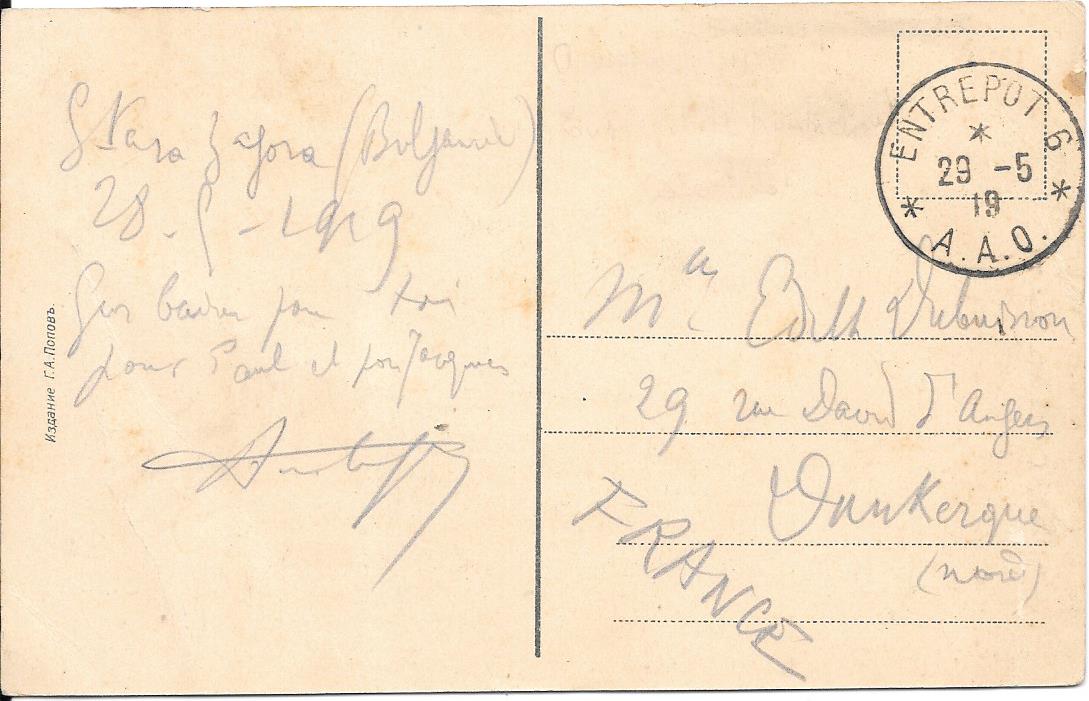 Stara Zagora (Bulgarie)
28-5-1919
Gros baiser pour toi
pour Paul et pour Jacques
Издание Г.А.Поповъ.
ENTREPOT 6
29 -5
19
A.A.O.
Mlle Edith Dubuisson
29 rue David d'Angers
Dunkerque
(Nord)
FRANCE